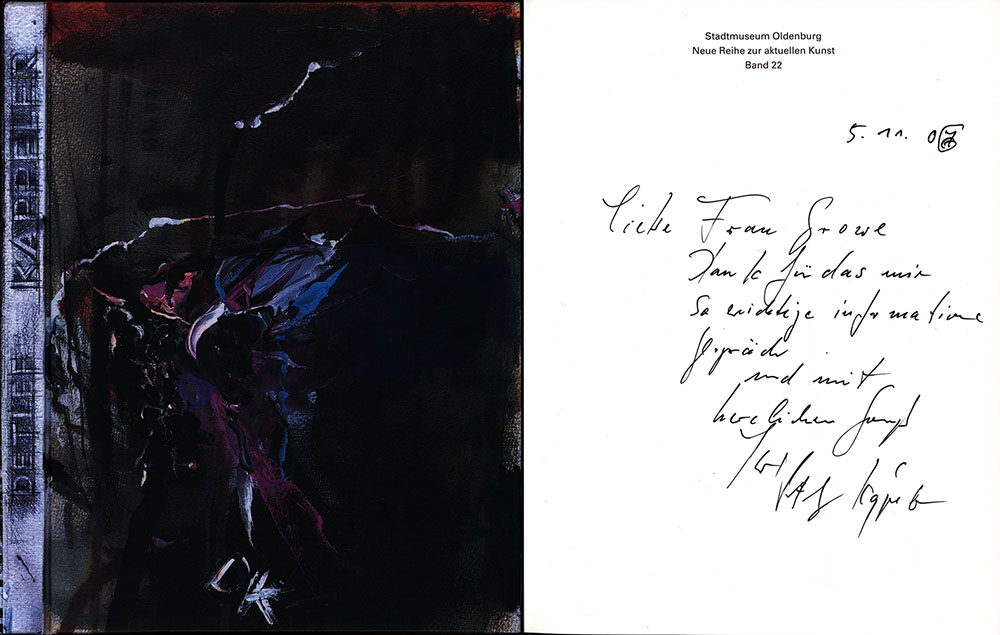 DETLEF KAPPELER
DK
Stadtmuseum Oldenburg
Neue Reihe zur aktuellen Kunst
Band 22
5. 11. 07
Liebe Frau Growe
Dank für das mir
so wichtige informative
Gespräch
und mit
herzlichem Gruß
Ihr
Detlef Kappeler